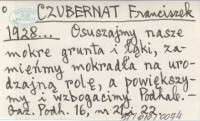 CZUBERNAT Franciszek
1928... Osuszajmy nasze
mokre grunta i łąki, za-
mieńmy mokradła na uro-
dzajną rolę, a powiększy-
my i wzbogacimy Podhale.-
Gaz. Podh. 16, nr 21, s. 22